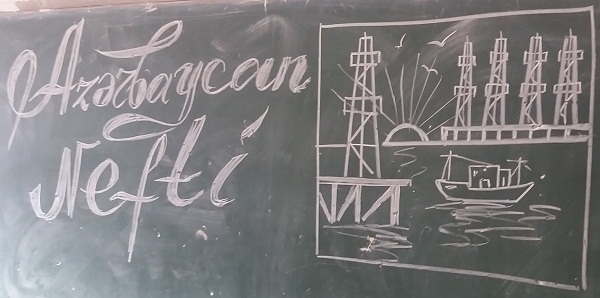 Azərbaycan
Nefti